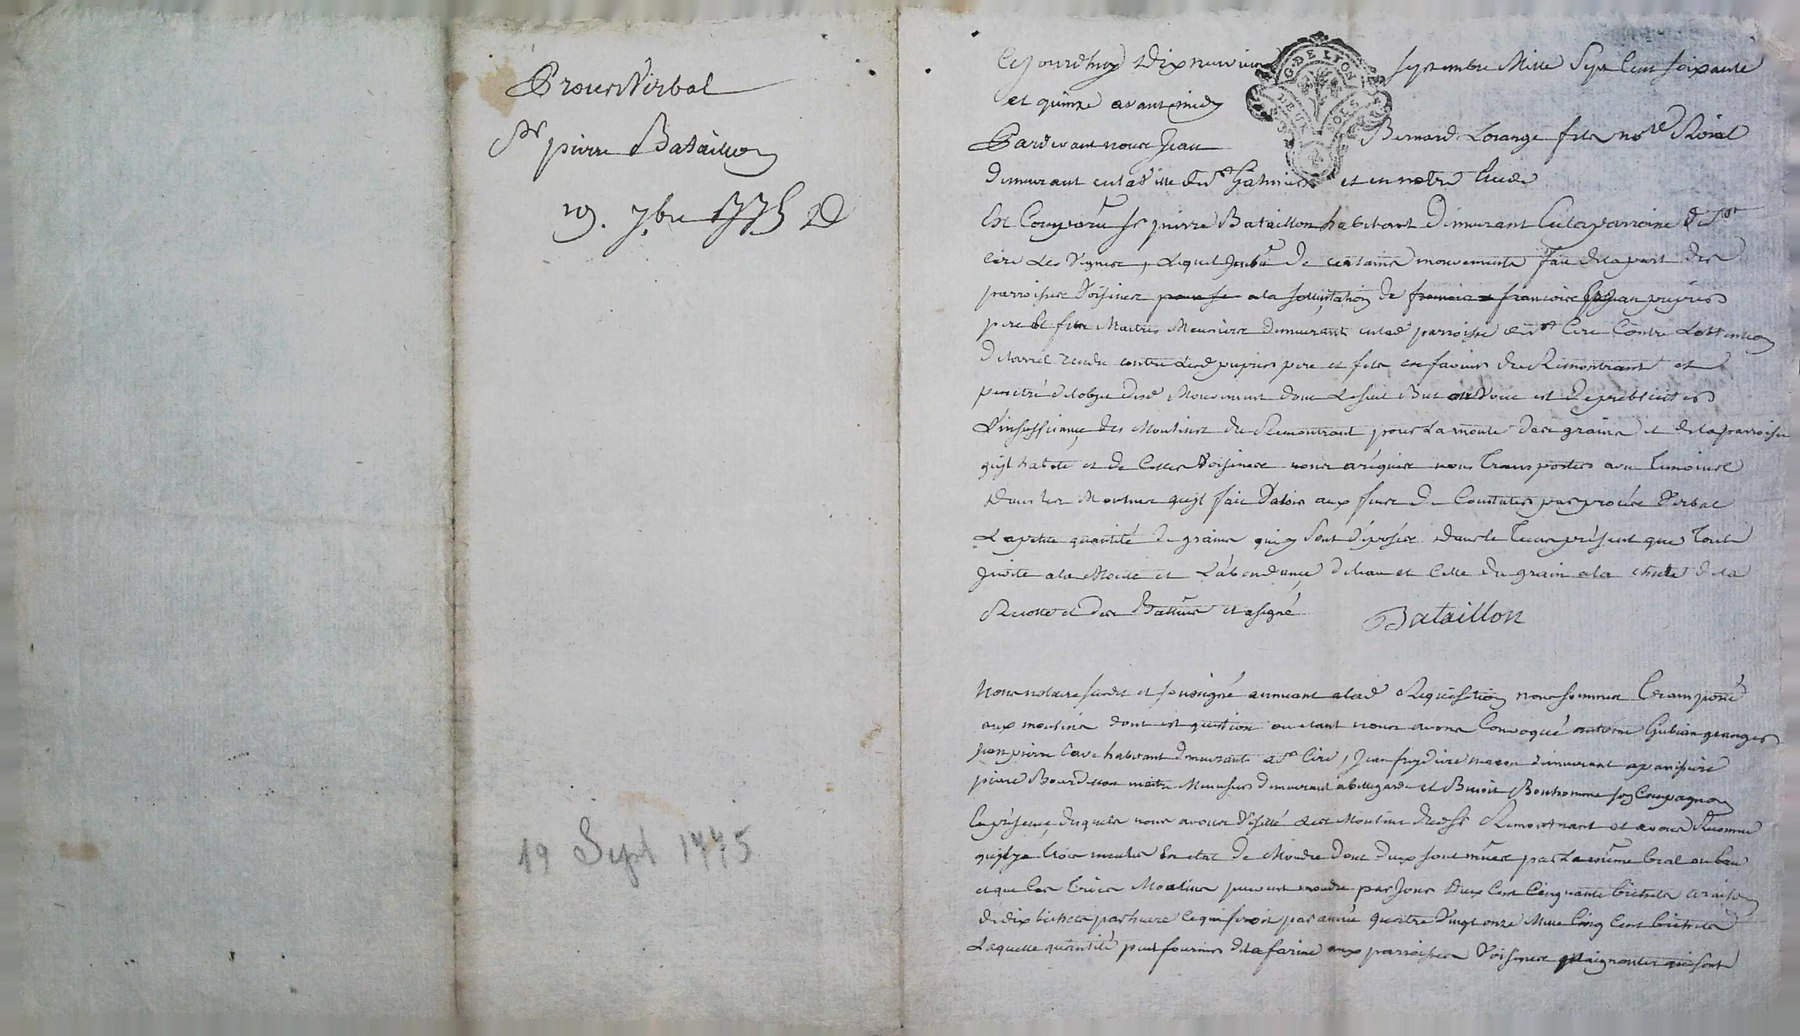 Procès Verbal
Sr pierre Bataillon
19. 7bre 1775
19 Sept 1775
Cejourdhuy Dix neuvieme septembre Mille Sept Cent soixante
et quinze avant midy
G. DE LYON
DEUX SOLS
Pardevant nous Jean Bernard Lorange fils nore Roial
demeurant en la ville de St Galmier et en notre Etude
Est Comparu sr pierre Bataillon habitant Demeurant En la parroisse de St
Cire Les Vignes, Lequel de certains mouvements fait de la part des
parroisses Voisines a la sollicitation de francoise
pere et fils Maitres Meuniers demeurant en lad parroisse de St Cire Contre
Darrest rendu contre Lesd pere et fils en faveur du Remontrant et
de lobjet dud Mouvement dont Le seul But est De
L'insuffisance des Moulins du Remontrant pour La moute des grains et de la parroisse
quil habite et de Celles Voisines nous a requis nous Transporter avec Temoins
Dans les Moulins quil fait Valoir aux fins de Constater par procès Verbal
La petite quantité de grains qui y sont Déposés Dans le Tems présent que Tout
Invite a la Moute et L'abondance de leau et Celle du grain a la suite de la
Recolte et des et a signé
Bataillon
Nous notaire susdit et soussigné a lad Requisition nous sommes Transporté
aux moulins dont est question ou etant nous avons Convoqué antoine Gubian granger
Jean pierre habitant demeurant a St Cire, Jean maçon demeurant a
pierre Bourdillon maitre Meunier demeurant a Bellegarde et Benoit Bonhomme son Compagnon
En présence desquels nous avons Visitté Les Moulins dud Sr Remontrant et avons Reconnu
quil y a trois meules En etat de Moudre dont deux sont par La même
et que Les Trois Moulins peuvent moudre par Jour deux Cent Cinquante bichets a raison
de dix bichets par heure ce qui feroit par année quatre Vingt onze Mille Cinq Cent bichets
Laquelle quantité peut fournir de la farine aux parroisses Voisines